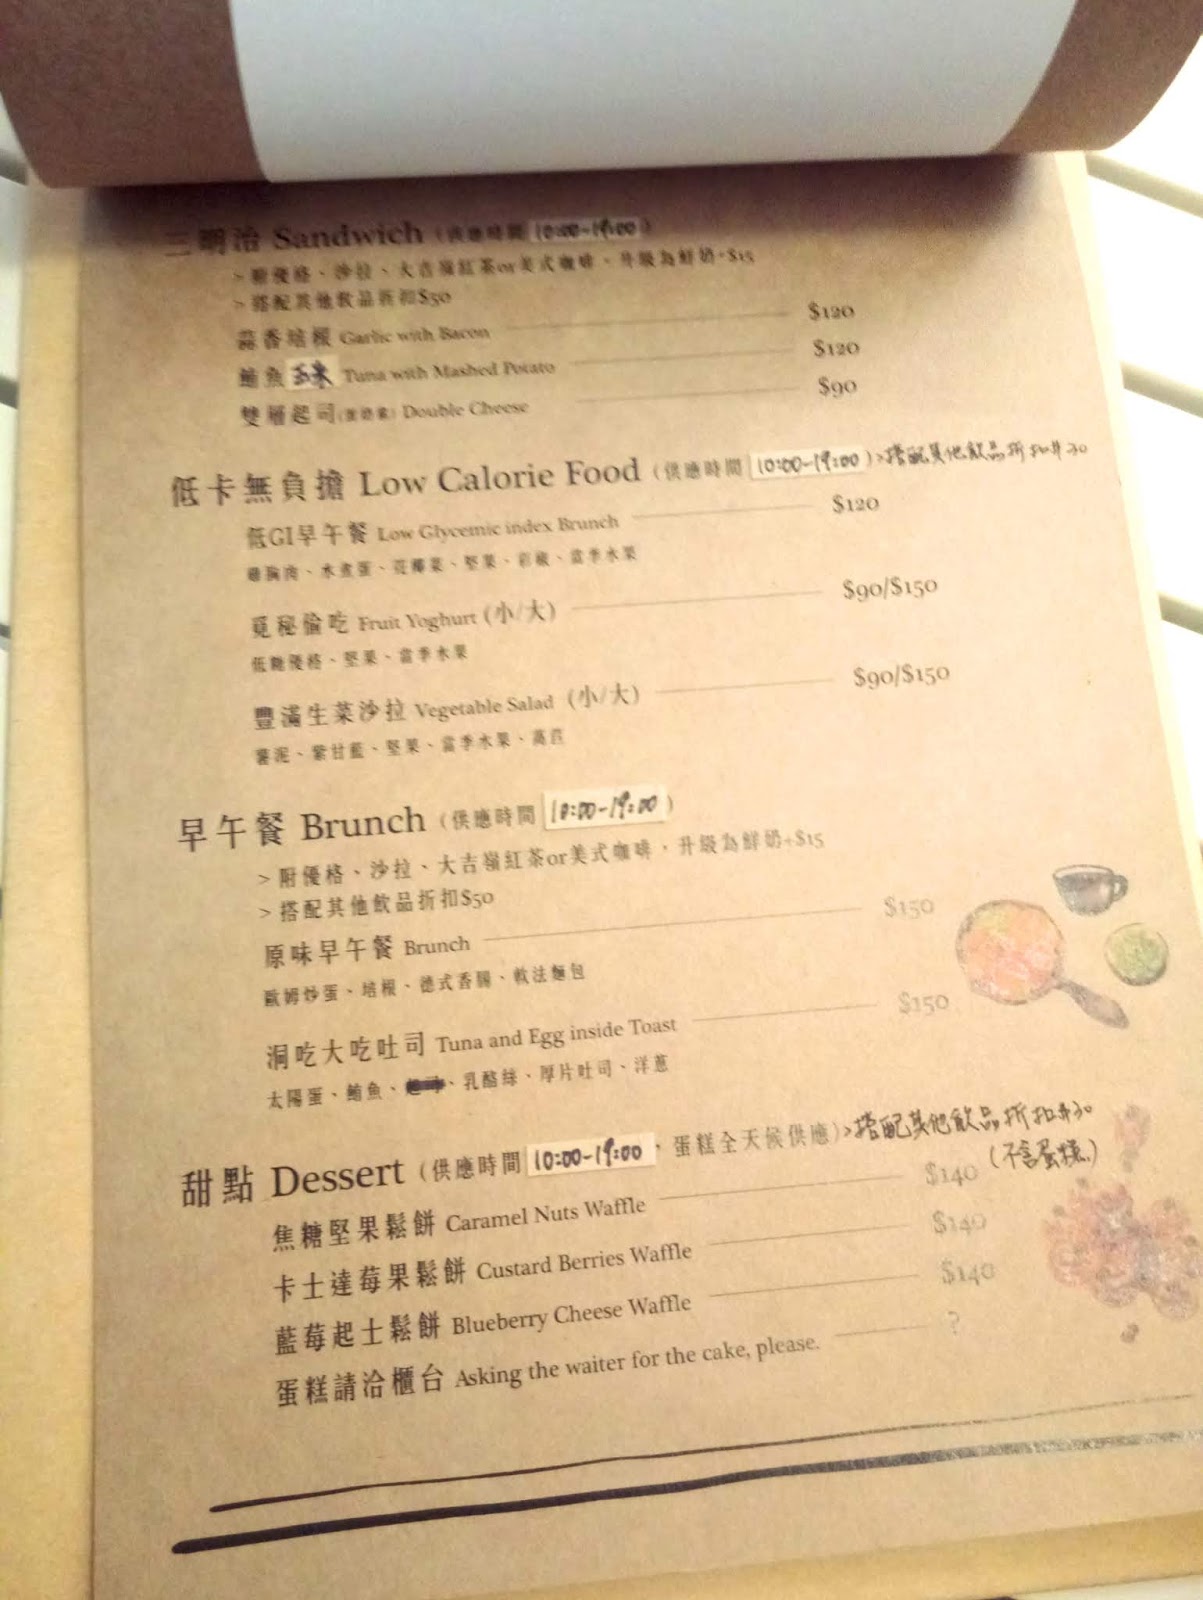 三明治 Sandwich (供應時間 10:00-19:00)
> 附優格、沙拉、大吉嶺紅茶or美式咖啡、升級為鮮奶+$15
> 搭配其他飲品折扣$50
蒜香培根 Garlic with Bacon $120
鮪魚玉米 Tuna with Mashed Potato $120
雙層起司(蛋奶素) Double Cheese $90
低卡無負擔 Low Calorie Food (供應時間 10:00-19:00) >搭配其他飲品折扣$30
低GI早午餐 Low Glycemic index Brunch $120
雞胸肉、水煮蛋、花椰菜、堅果、彩椒、當季水果
覓秘偷吃 Fruit Yoghurt (小/大) $90/$150
低糖優格、堅果、當季水果
豐滿生菜沙拉 Vegetable Salad (小/大) $90/$150
薯泥、紫甘藍、堅果、當季水果、萵苣
早午餐 Brunch (供應時間 10:00-19:00)
> 附優格、沙拉、大吉嶺紅茶or美式咖啡，升級為鮮奶+$15
> 搭配其他飲品折扣$50
原味早午餐 Brunch $150
歐姆炒蛋、培根、德式香腸、軟法麵包
洞吃大吃吐司 Tuna and Egg inside Toast $150
太陽蛋、鮪魚、、乳酪絲、厚片吐司、洋蔥
甜點 Dessert (供應時間 10:00-19:00，蛋糕全天候供應) >搭配其他飲品折扣$30
(不含蛋糕)
焦糖堅果鬆餅 Caramel Nuts Waffle $140
卡士達莓果鬆餅 Custard Berries Waffle $140
藍莓起士鬆餅 Blueberry Cheese Waffle $140
蛋糕請洽櫃台 Asking the waiter for the cake, please. ?